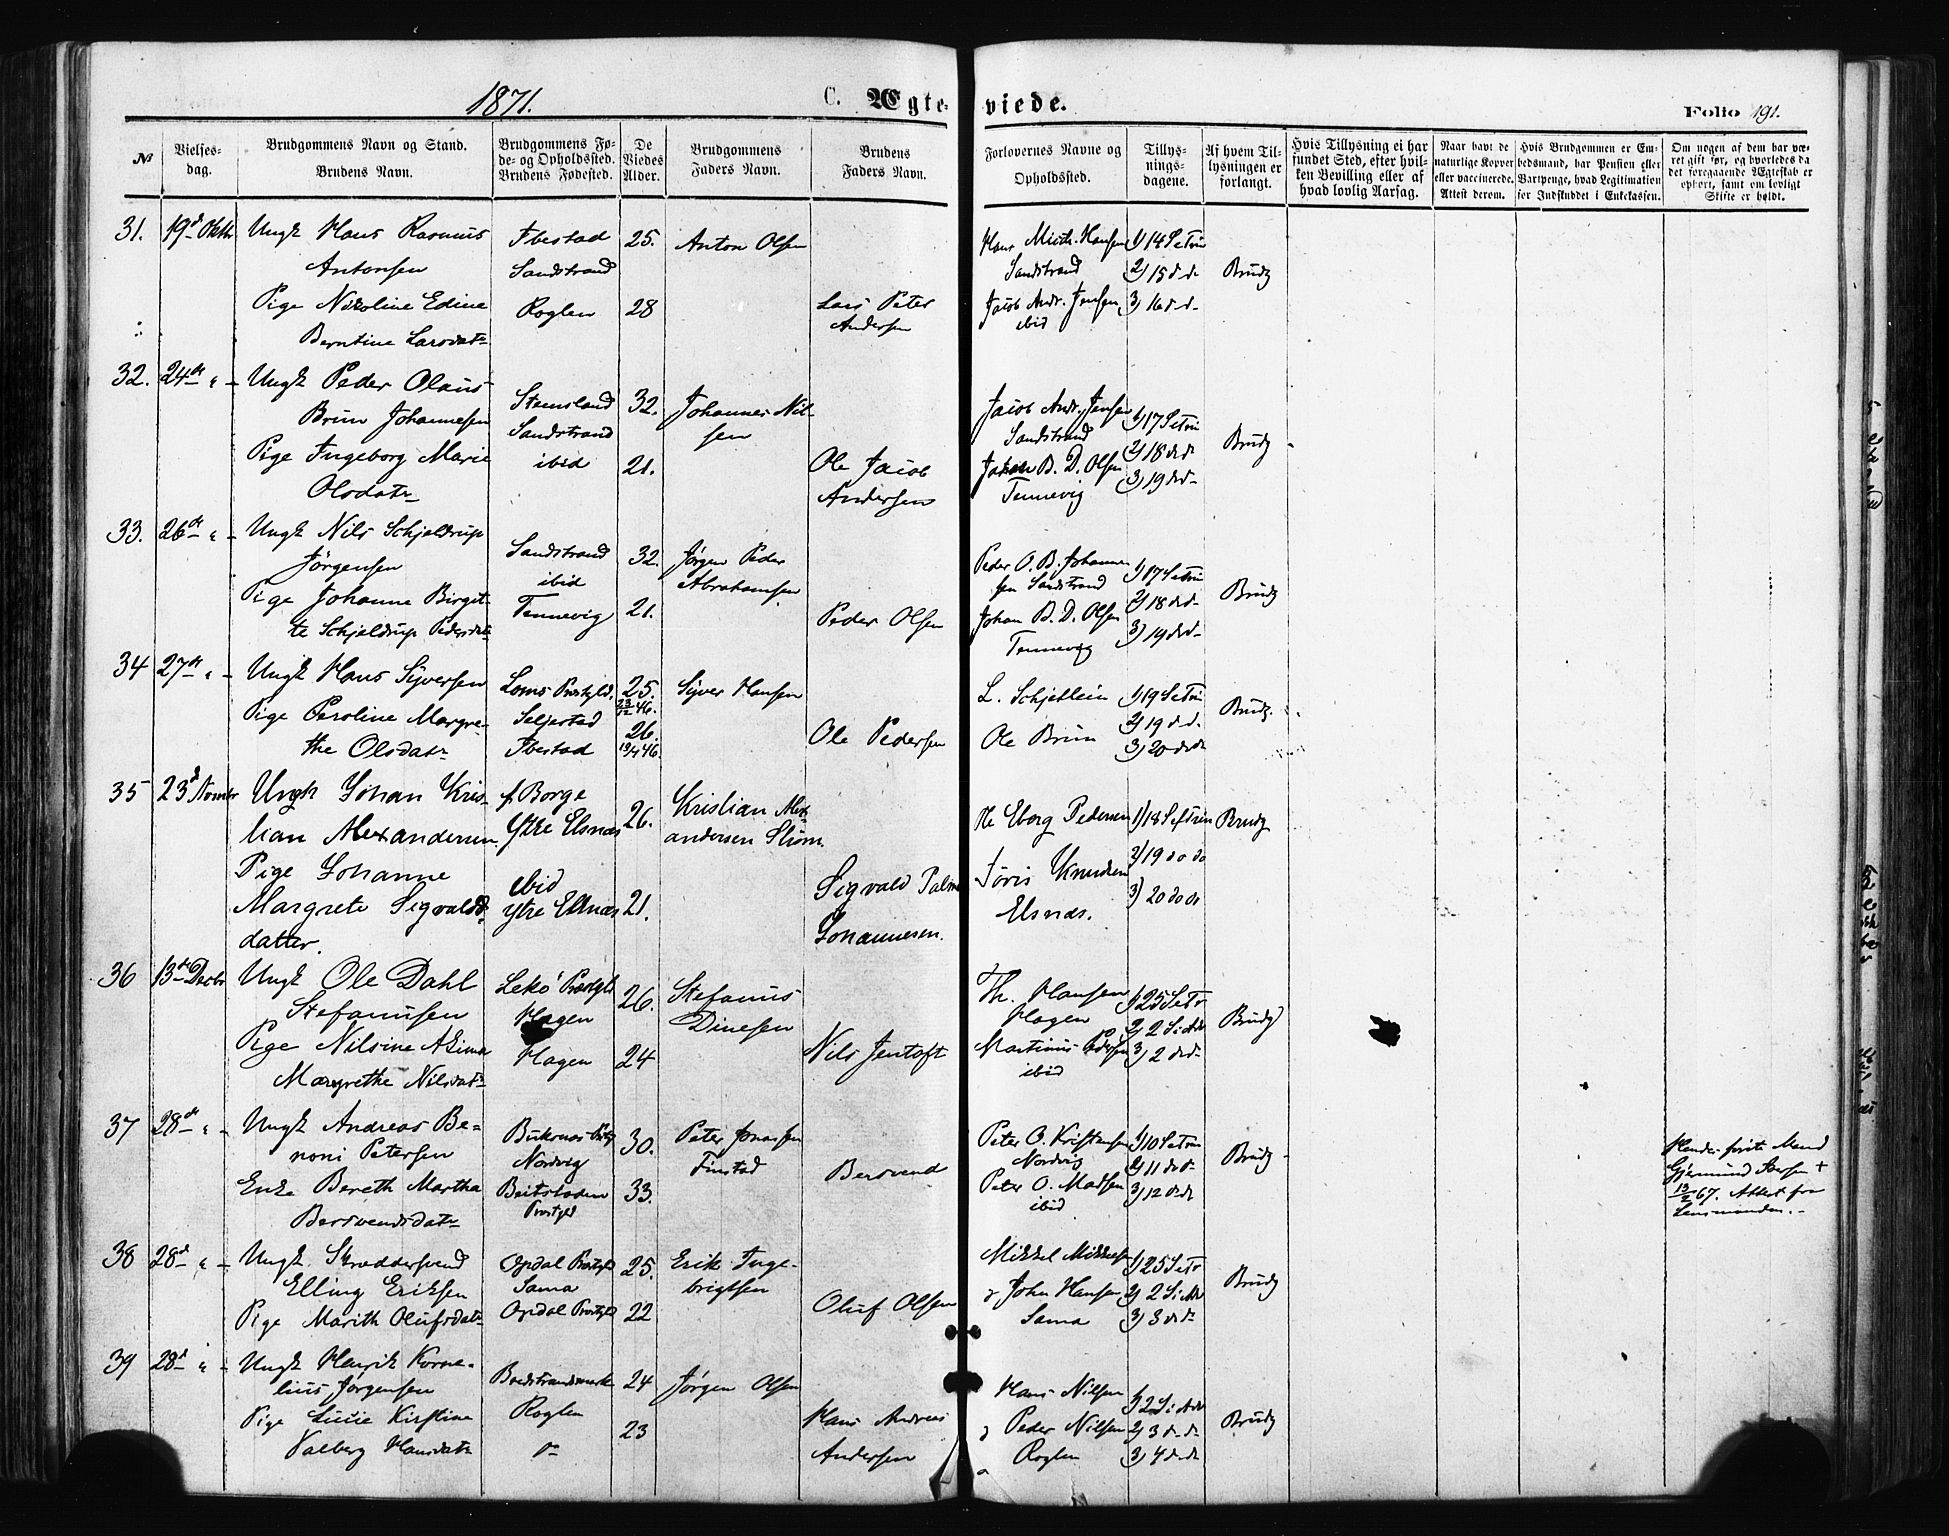 1871.
C. Ægte-
viede.
Folio 191.
№
Vielses-
dag.
Brudgommens Navn og Stand.
Brudens Navn.
Brudgommens Fø-
de- og Opholdssted.
Brudens Fødested.
De
Viedes
Alder.
Brudgommens
Faders Navn.
Brudens
Faders Navn.
Forlovernes Navne og
Opholdssted.
Tillys-
nings-
dagene.
Af hvem Til-
lysningen er
forlangt.
Hvis Tillysning ei har
fundet Sted, efter hvil-
ken Bevilling eller af
hvad lovlig Aarsag.
Naar havt de
naturlige Kopper
eller vaccinerede.
Attest derom.
Hvis Brudgommen er Em-
bedsmand, har Pension eller
Vartpenge, hvad Legitimation
for Indskuddet i Enkekassen.
Om nogen af dem har væ-
ret gift før, og hvorledes da
det foregaaende Ægteskab er
ophørt, samt om lovligt
Skifte er holdt.
31. 19d Oktb
Ungk Hans Rasmus
Antonsen
Pige Nikoline Edine
Berntine Larsdatr
Ibestad
Sandstrand
Roglen
25.
28
Anton Olsen
Lars Peter
Andersen
Hans Mich. Hansen
Sandstrand
Jacob Andr. Jensen
ibid
1) 14 S e Trin
2) 15 d d
3) 16 d d
Brudg
32. 24de " -
Ungk Peder Olaus
Brun Johannesen
Pige Ingeborg Marie
Olsdatr
Stensland
Sandstrand
ibid
32.
21.
Johannes Nil-
sen
Ole Jacob
Andersen
Jacob Andr. Jensen
Sandstrand
Johan B. D. Olsen
Tennevig
1) 17 S e Trin
2) 18 d d
3) 19 d d
Brudg
33. 26de " -
Ungk Nils Schjeldrup
Jørgensen
Pige Johanne Birgit-
te Schjeldrup Pedersdatr
Sandstrand
ibid
Tennevig
32.
21.
Jørgen Peder
Abrahamsen
Peder Olsen
Peder O. B. Johanne-
sen Sandstrand
Johan B. D. Olsen
Tennevig
1) 17 S e Trin
2) 18 d d
3) 19 d d
Brudg
34 27de " -
Ungk Hans Syversen
Pige Peroline Margre-
the Olsdatr
Loms Prestgld.
Seljestad
Ibestad
25.
23/12 46.
26.
19/4 46.
Syver Hansen
Ole Pedersen
L. Schjellein
Ole Brun
1) 19 S e Trin
2) 19 d d.
3) 20 d d
Brudg.
35 23d Novmbr
Ungk Johan Kris-
tian Alexandersen
Pige Johanne
Margrete Sigvalds-
datter.
f. Borge
Ytre Elsnæs
ibid
Ytre Elsnæs
26.
21.
Kristian Alex-
andersen Strøm.
Sigvald Palm
Johannesen.
Ole Eberg Pedersen
Joris Knudsen
Elsnæs.
1) 18 S e f Trin
2) 19 do do
3) 20 do do
Brudg
36 13de Decbr
Ungk Ole Dahl
Stefanusen
Pige Nilsine Akima
Margrethe Nilsdatr
Lekø Prestgld
Hagen
Hagen
26.
24
Stefanus
Dinesen
Nils Jentoft
Th. Hansen
Hagen
Martinus Pedersen
ibid
1) 25 S e Tr
2) 2 S i Adv
3) 2 d d
Brudg
37 28de " -
Ungk Andreas Be-
noni Petersen
Enke Bereth Martha
Bersvendsdatr
Buksnæs Prstg
Nordvig
Beitstaden
Prestgld
30.
33.
Peter Jonassen
Finstad
Bersvend
Peter O. Kristensen
Nordvig
Peter O. Madsen
ibid
1) 10 S e Trin
2) 11 d d
3) 12 d d
Brudg
Hendes første Mand
Gjermund Iversen +
13/2 67. Attest fra
Lensmanden.
38 28d " -
Ungk. Skræddersvend
Elling Eriksen
Pige Marith Olufsdatr
Opdal Prestgld
Sama
Opdal Prestgld
25.
22
Erik Inge-
brigtsen
Oluf Olsen
Mikkel Mikkelsen
John Hansen
Sama
1) 25 S e Tr
2) 2 S i Adv
3) 3 d d
Brudg
39 28d " -
Ungk Henrik Korne-
lius Jørgensen
Pige Lucie Kirstine
Valberg Hansdatr
Bredstrandsmark
Roglen
do
24
23
Jørgen Olsen
Hans Andreas
Andersen
Hans Nilsen
Peder Nilsen
Roglen
1) 2 S i Adv
2) 3 d d
3) 4 d d
Brudg